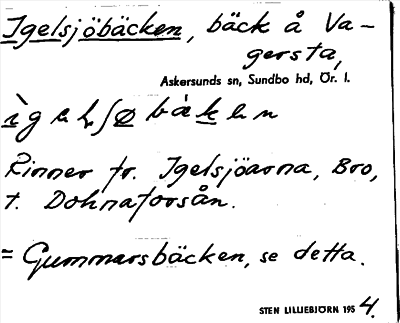 Igelsjöbäcken, bäck å Va-
gersta,
Askersunds sn, Sundbo hd, Ör. l.
Rinner fr. Igelsjöarna, Bro,
t. Dohnaforsån.
= Gummarsbäcken, se detta.
STEN LILLIEBJÖRN 1954.